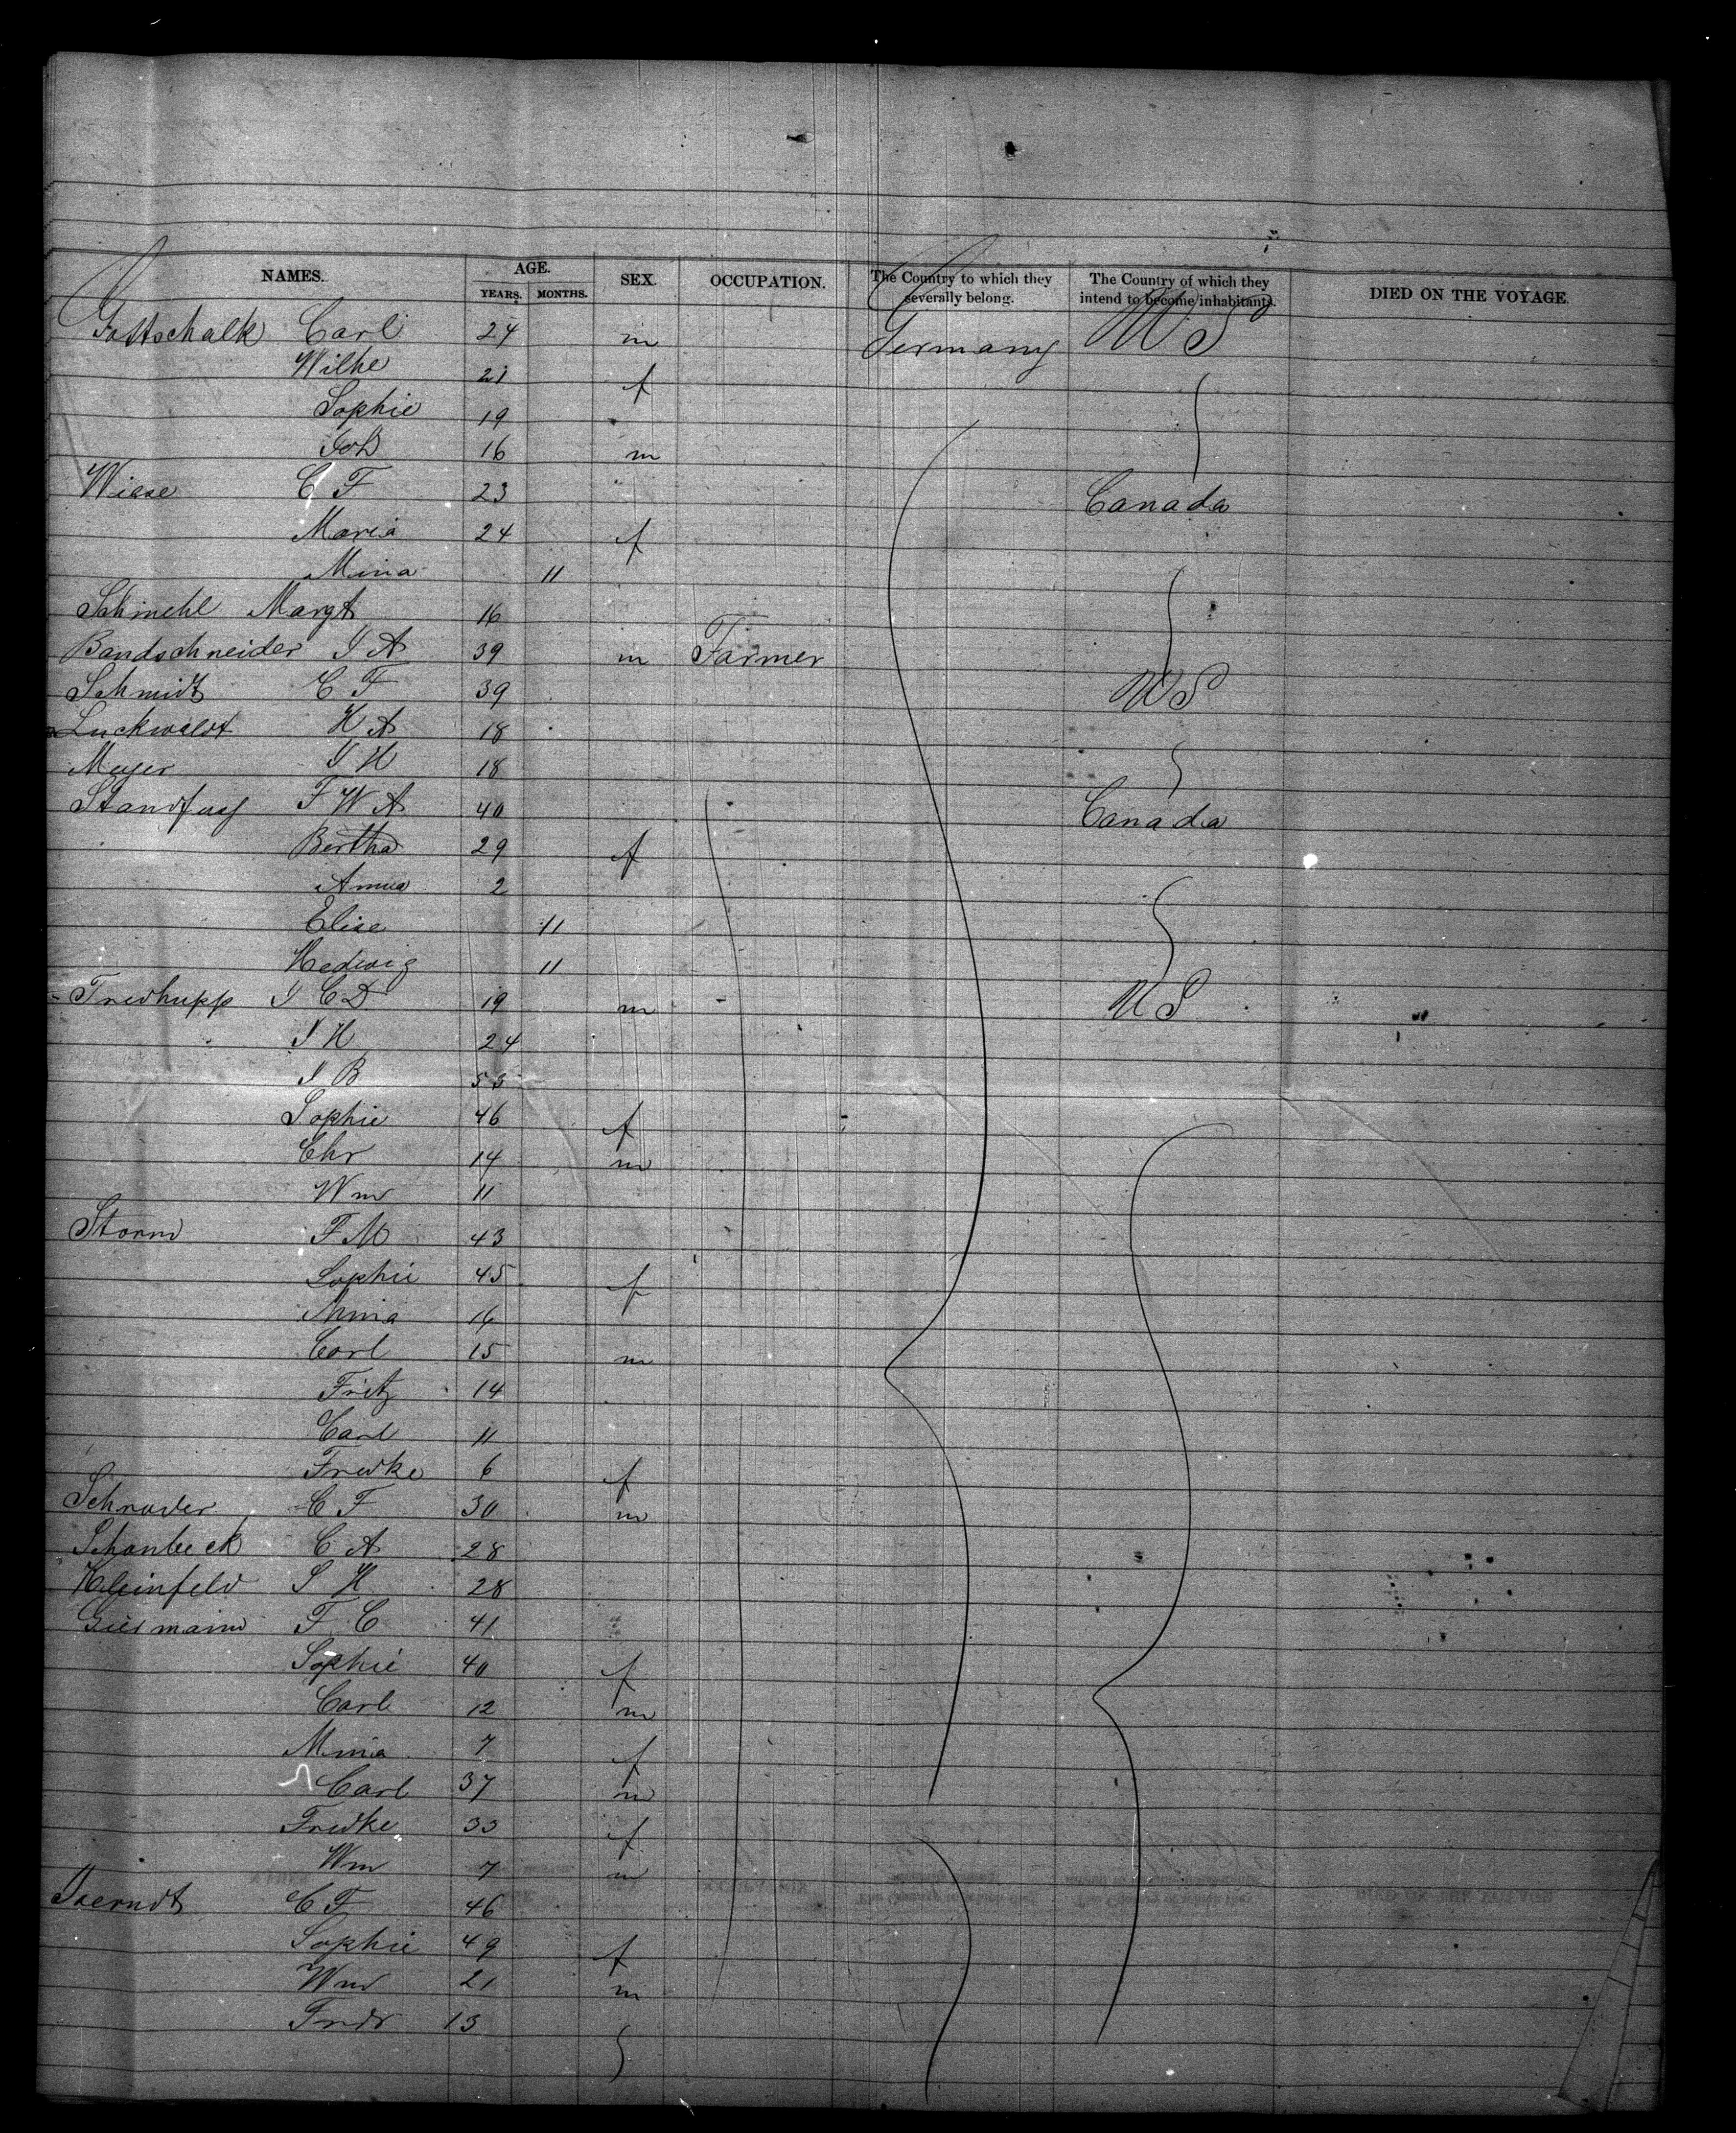 NAMES. AGE. SEX. OCCUPATION. The Country to which they severally belong. The Country of which they intend to become inhabitants. DIED ON THE VOYAGE.
YEARS. MONTHS.
Gottschalk Carl 24 m Germany US
Wilhe 21 f
Sophie 19
Joh 16 m
Wiese C F 23 " Canada
Maria 24 f
Mina 11
Schmehl Margt 16
Bandschneider J A 39 m Farmer
Schmidt C F 39 US
Luckwaldt H A 18
Meyer J H 18
F W A 40 Canada
Bertha 29 f
Anna 2
Elise 11
Hedwig 11
J C D 19 m US
J H 24
J B 53
Sophie 46 f
Chr 14 m
Wm 11
Storm F M 43
Sophie 45 f
Mina 16
Carl 15 m
Fritz 14
Carl 11
Fredke 6 f
Schroder C F 30 m
Schonbeck C A 28
Kleinfeld J H 28
F C 41
Sophie 40 f
Carl 12 m
Mina 7 f
Carl 37 m
Fredke 33 f
Wm 7 m
C F 46
Sophie 49 f
Wm 21 m
Fredr 13